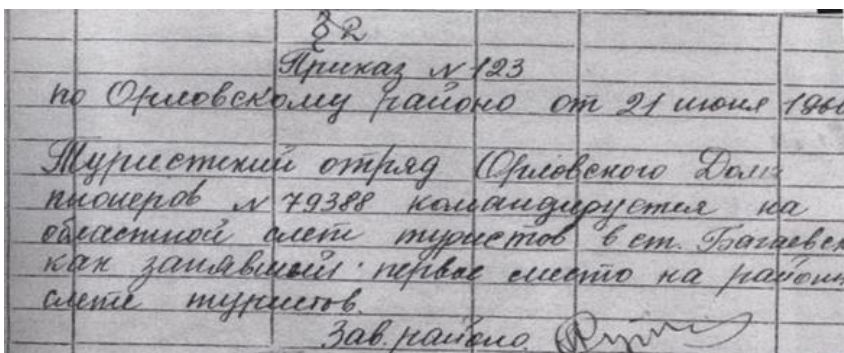 § 2
Приказ N 123
по Орловскому районо от 21 июня 196
Туристский отряд Орловского Дома
пионеров N 79388 командируется на
областной слет туристов в ст. Багаевск
как занявший первое место на районн
слете туристов.
Зав. районо